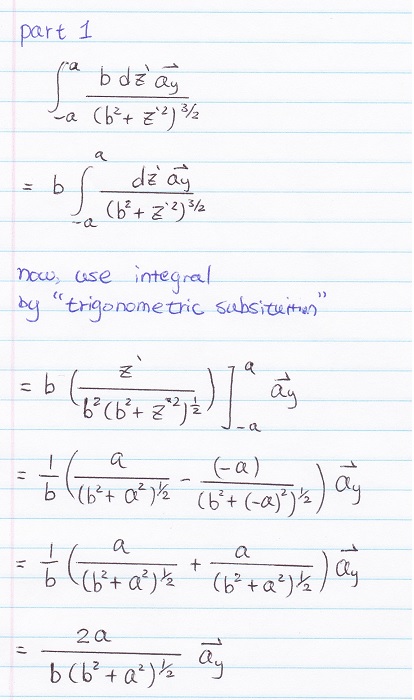 part 1
∫_{-a}^{a} b dz` a⃗y / (b² + z`²)^{3/2}
= b ∫_{-a}^{a} dz` a⃗y / (b² + z`²)^{3/2}
now, use integral
by "trigonometric subsituition"
= b ( z` / b²(b² + z`²)^{1/2} ) ]_{-a}^{a} a⃗y
= 1/b ( a / (b² + a²)^{1/2} - (-a) / (b² + (-a)²)^{1/2} ) a⃗y
= 1/b ( a / (b² + a²)^{1/2} + a / (b² + a²)^{1/2} ) a⃗y
= 2a / b(b² + a²)^{1/2} a⃗y